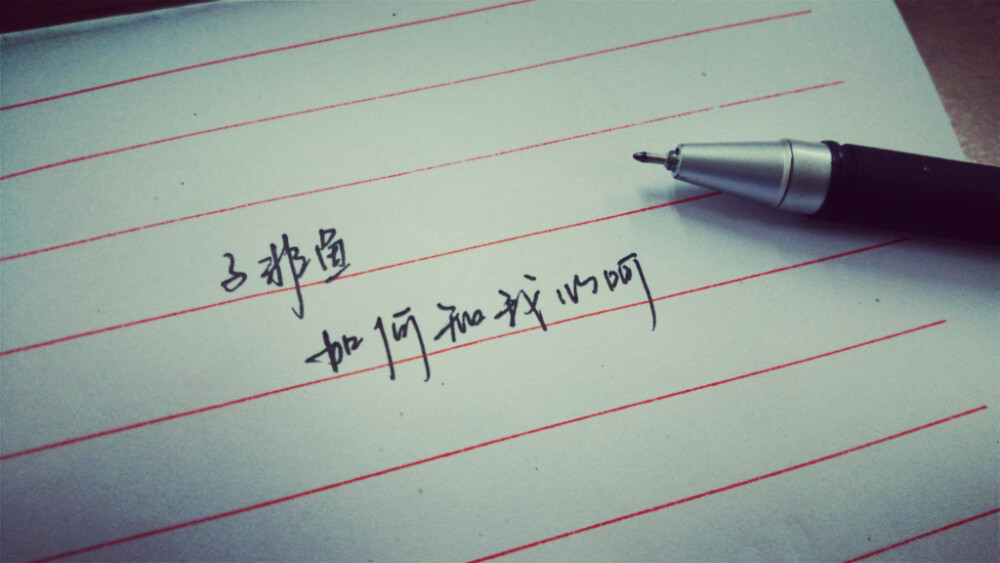 子非鱼
如何知我心呵